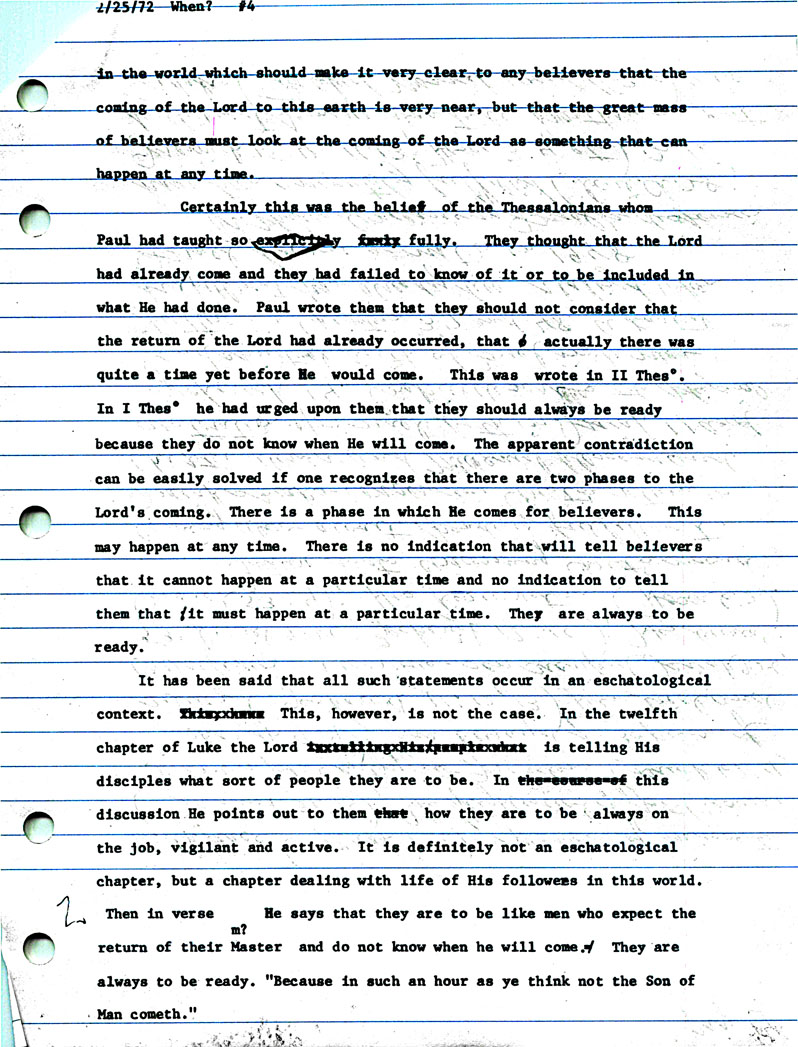 2/25/72 When? #4
in the world which should make it very clear to any believers that the
coming of the Lord to this earth is very near, but that the great mass
of believers must look at the coming of the Lord as something that can
happen at any time.
Certainly this was the belief of the Thessalonians whom
Paul had taught so explicitly fully. They thought that the Lord
had already come and they had failed to know of it or to be included in
what He had done. Paul wrote them that they should not consider that
the return of the Lord had already occurred, that actually there was
quite a time yet before He would come. This was wrote in II Thes°.
In I Thes° he had urged upon them that they should always be ready
because they do not know when He will come. The apparent contradiction
can be easily solved if one recognizes that there are two phases to the
Lord's coming. There is a phase in which He comes for believers. This
may happen at any time. There is no indication that will tell believers
that it cannot happen at a particular time and no indication to tell
them that it must happen at a particular time. They are always to be
ready.
It has been said that all such statements occur in an eschatological
context. This, however, is not the case. In the twelfth
chapter of Luke the Lord is telling His
disciples what sort of people they are to be. In the course of this
discussion He points out to them that how they are to be always on
the job, vigilant and active. It is definitely not an eschatological
chapter, but a chapter dealing with life of His followers in this world.
2 Then in verse He says that they are to be like men who expect the
m?
return of their Master and do not know when he will come. They are
always to be ready. "Because in such an hour as ye think not the Son of
Man cometh."